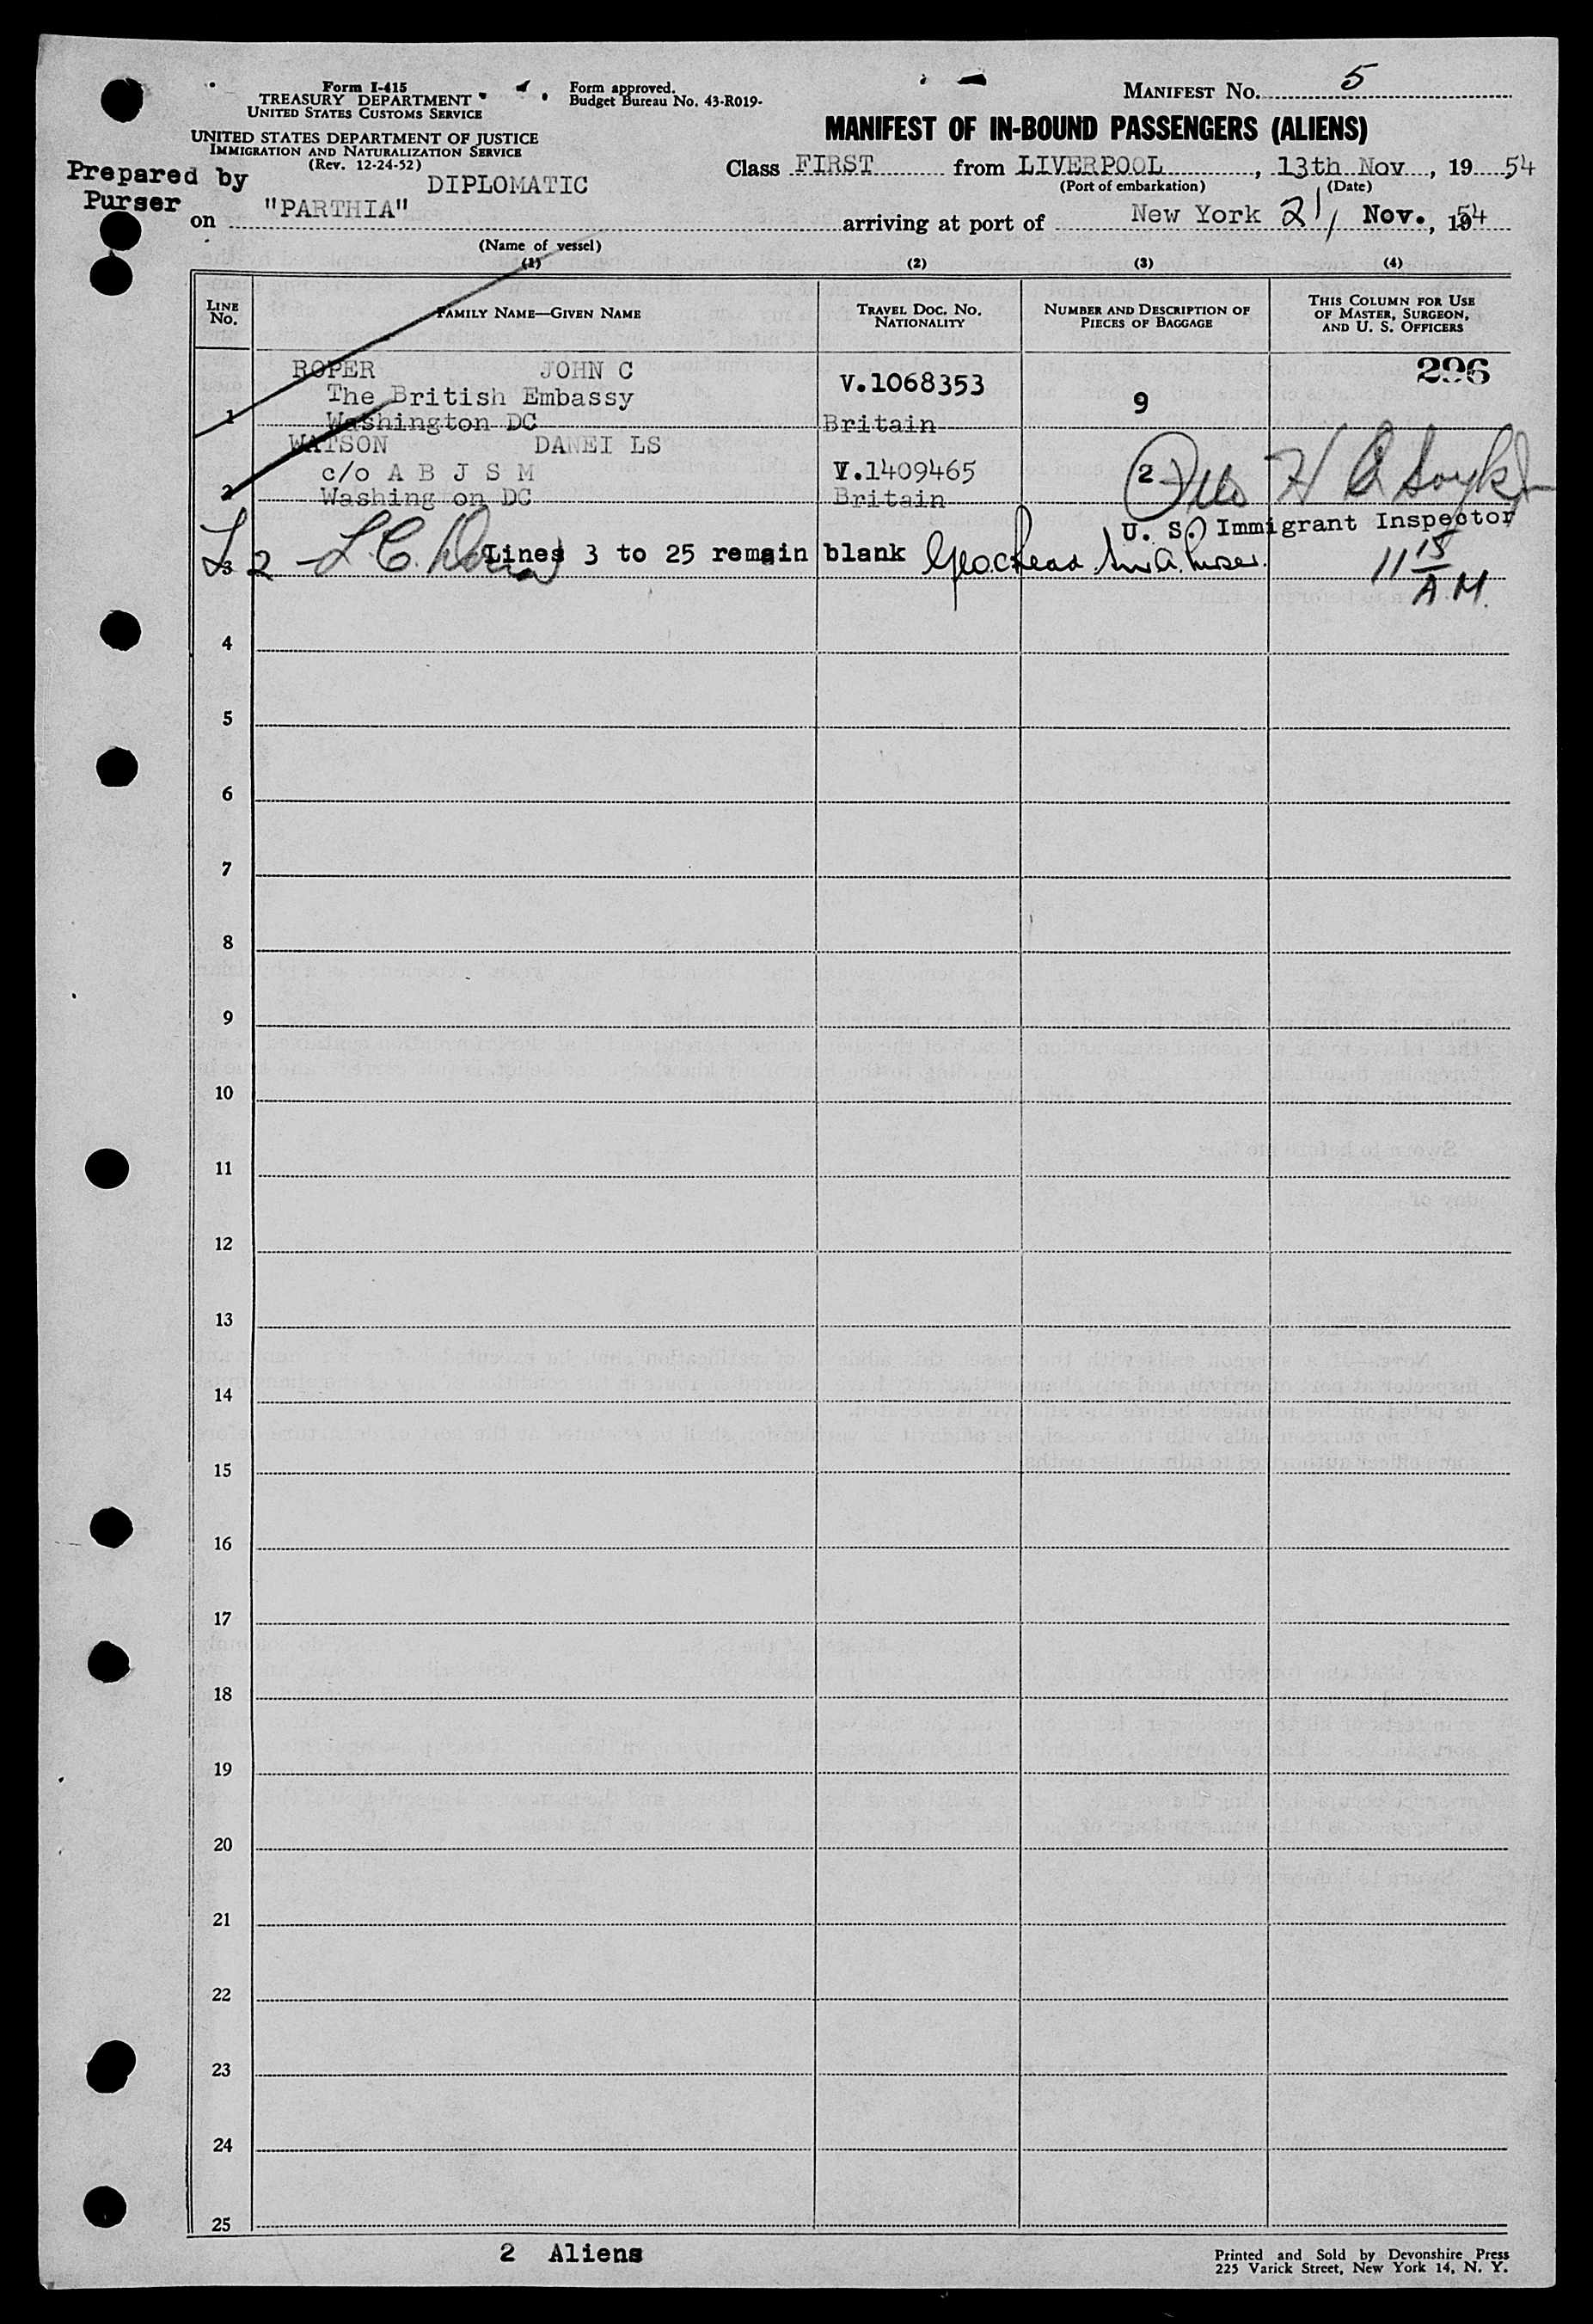 Form I-415
TREASURY DEPARTMENT
UNITED STATES CUSTOMS SERVICE
Form approved.
Budget Bureau No. 43-R019-
MANIFEST NO. 5
UNITED STATES DEPARTMENT OF JUSTICE
IMMIGRATION AND NATURALIZATION SERVICE
(Rev. 12-24-52)
MANIFEST OF IN-BOUND PASSENGERS (ALIENS)
Prepared by
Purser
DIPLOMATIC
Class FIRST from LIVERPOOL, 13th Nov, 19 54
(Port of embarkation) (Date)
on "PARTHIA" arriving at port of New York 21, Nov., 1954
(Name of vessel)
(1) (2) (3) (4)
LINE NO.
FAMILY NAME—GIVEN NAME
TRAVEL DOC. NO. NATIONALITY
NUMBER AND DESCRIPTION OF PIECES OF BAGGAGE
THIS COLUMN FOR USE OF MASTER, SURGEON, AND U. S. OFFICERS
296
ROPER JOHN C V.1068353 9
The British Embassy
1 Washington DC Britain
WATSON DANEI LS
c/o A B J S M V.1409465 2
2 Washing on DC Britain
U. S. Immigrant Inspector
3 L 2 Lines 3 to 25 remain blank
11 15 A.M.
4
5
6
7
8
9
10
11
12
13
14
15
16
17
18
19
20
21
22
23
24
25
2 Aliens
Printed and Sold by Devonshire Press
225 Varick Street, New York 14, N. Y.